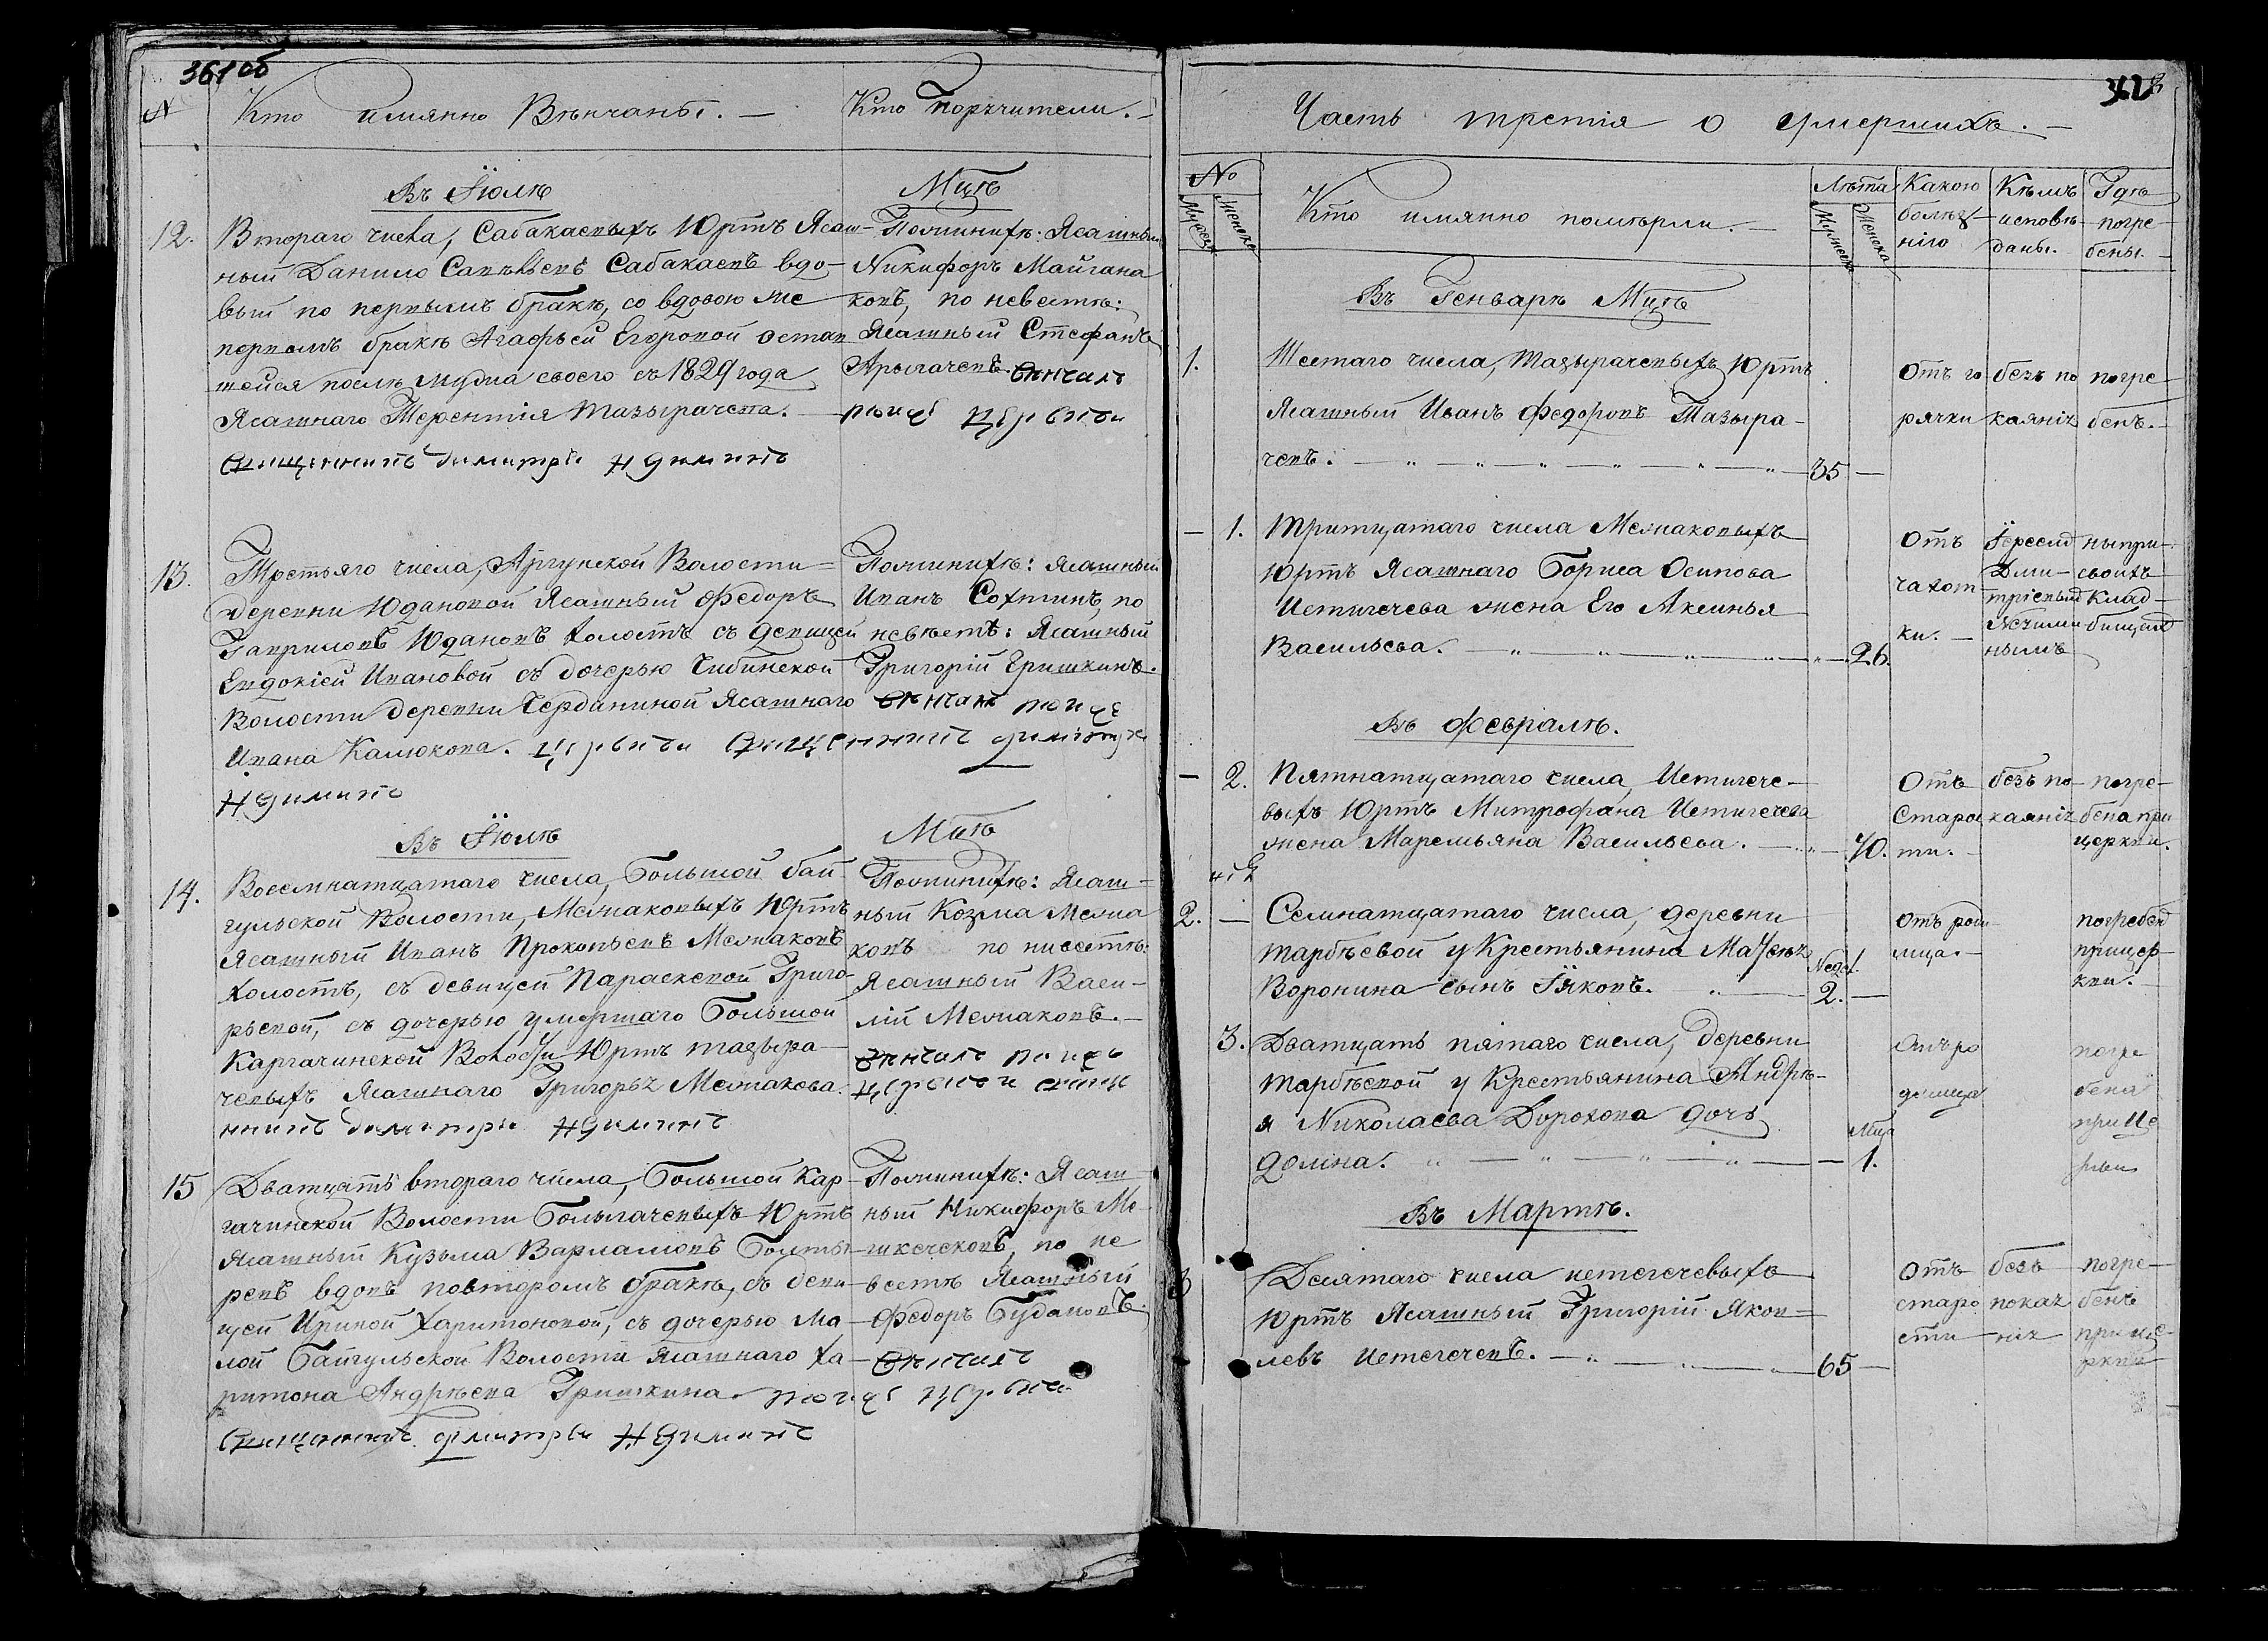 361 об
№ Кто имянно Вѣнчаны. — Кто Поручители. —
Въ Iюлѣ Мцѣ
12. Втораго числа, Сабакаевыхъ Юртъ Ясаш-
ный Данило Сабакаевъ вдо-
вый по первымъ бракѣ, со вдовою же
первомъ бракѣ Агафьей Егоровой остав
шейся послѣ мужа своего съ 1829 года
Ясашнаго Терентiя Тазырачева.
По женихѣ: Ясашный
Никифоръ Майгана
ковъ, по невестѣ:
Ясашный Стефанъ
Арыгачевъ. Венчалъ
тоиже Церкви
Священникъ Димитрiи
13. Третьяго числа, Аргунской Волости
деревни Юдановой Ясашный Федоръ
Гавриловъ Юдановъ холостъ съ девицей
Евдокiей Ивановой съ дочерью Чибинской
Волости деревни Черданиной Ясашнаго
Ивана Калюкова.
По женихѣ: Ясашный
Иванъ Сохтинъ, по
невѣстѣ: Ясашный
Григорiй Гришкинъ.
Венчалъ тоиже
Церкви Священникъ Димитри
Въ Iюлѣ Мцѣ
14. Восемнатцатаго числа, Большой бай
гульской Волости, Мезмаковыхъ Юртъ
Ясашный Иванъ Прокопьевъ Мезмаковъ
холостъ, съ девицей Параскевой Григо-
рьевой, съ дочерью умершаго Большой
Каргачинской Волости Юртъ тазыра-
чевыхъ Ясашнаго Григорья Мезмакова.
По женихѣ: Ясаш-
ный Козма Мезма
ковъ по нивестѣ:
Ясашный Васи-
лiй Мезмаковъ. —
Венчалъ тоиже
Церкви Свяще
нникъ Димитри
15 Дватцать втораго числа, Большой Кар-
гачинской Волости Болыгачевыхъ Юртъ
Ясашный Кузьма Варламовъ
вдовъ повторомъ бракѣ, съ деви-
цей Ириной Харитоновой, съ дочерью Ма-
лой Байгульской Волости Ясашнаго Ха-
ритона Андрѣева Гришкина.
По женихѣ: Ясаш-
ный Никифоръ Ме-
шкечековъ, по не
вестѣ Ясашный
Федоръ Будановъ.
Венчалъ
тоиже Церкви
Священникъ Димитри
Часть третiя о умершихъ. —
№ Мужеска Женска
Кто имянно помѣрли. —
Лѣта Мужеска Женска
Какою болѣз-нiю
Кѣмъ исповѣ-даны.
Гдѣ погре-бены.
Въ Генварѣ Мцѣ
1. Шестаго числа, Тазырачевыхъ Юртъ
Ясашный Иванъ Федоровъ Тазыра-
чевъ. 35 —
Отъ го рячки
безъ по каянiя
погре бенъ. —
— 1. Тритцатаго числа Мезмаковыхъ
Юртъ Ясашнаго Бориса Осипова
Истигечева жена Его Аксинья
Васильева. — 26.
Отъ чахот ки. —
Iереемъ Дми-трiевымъ
при своихъ Клад-бищахъ
Въ Февралѣ.
— 2. Пятнатцатаго числа, Истигече-
выхъ Юртъ Митрофана Истигечева
жена Маремьяна Васильева. — 70.
Отъ Старос ти. —
безъ по каянiя
погре- бена при церкви.
2. — Семнатцатаго числа, деревни
тарбѣевой у Крестьянина Матвѣя
Воронина сынъ Iяковъ. Недел. 2. —
Отъ роди мца. —
погребенъ прицер- кви.
3. Дватцать пятаго числа, деревни
тарбѣевой у Крестьянина Андрѣ-
я Николаева Дорохова дочь
Домна. — Мца 1.
Отъ ро димца
погре бена при це ркви
Въ Мартѣ.
3 Десятаго числа истегечевыхъ
Юртъ Ясашный Григорiй Яков-
левъ Истегечевъ. 65 —
Отъ старо сти
безъ покая нiя
погре- бенъ при це- ркви